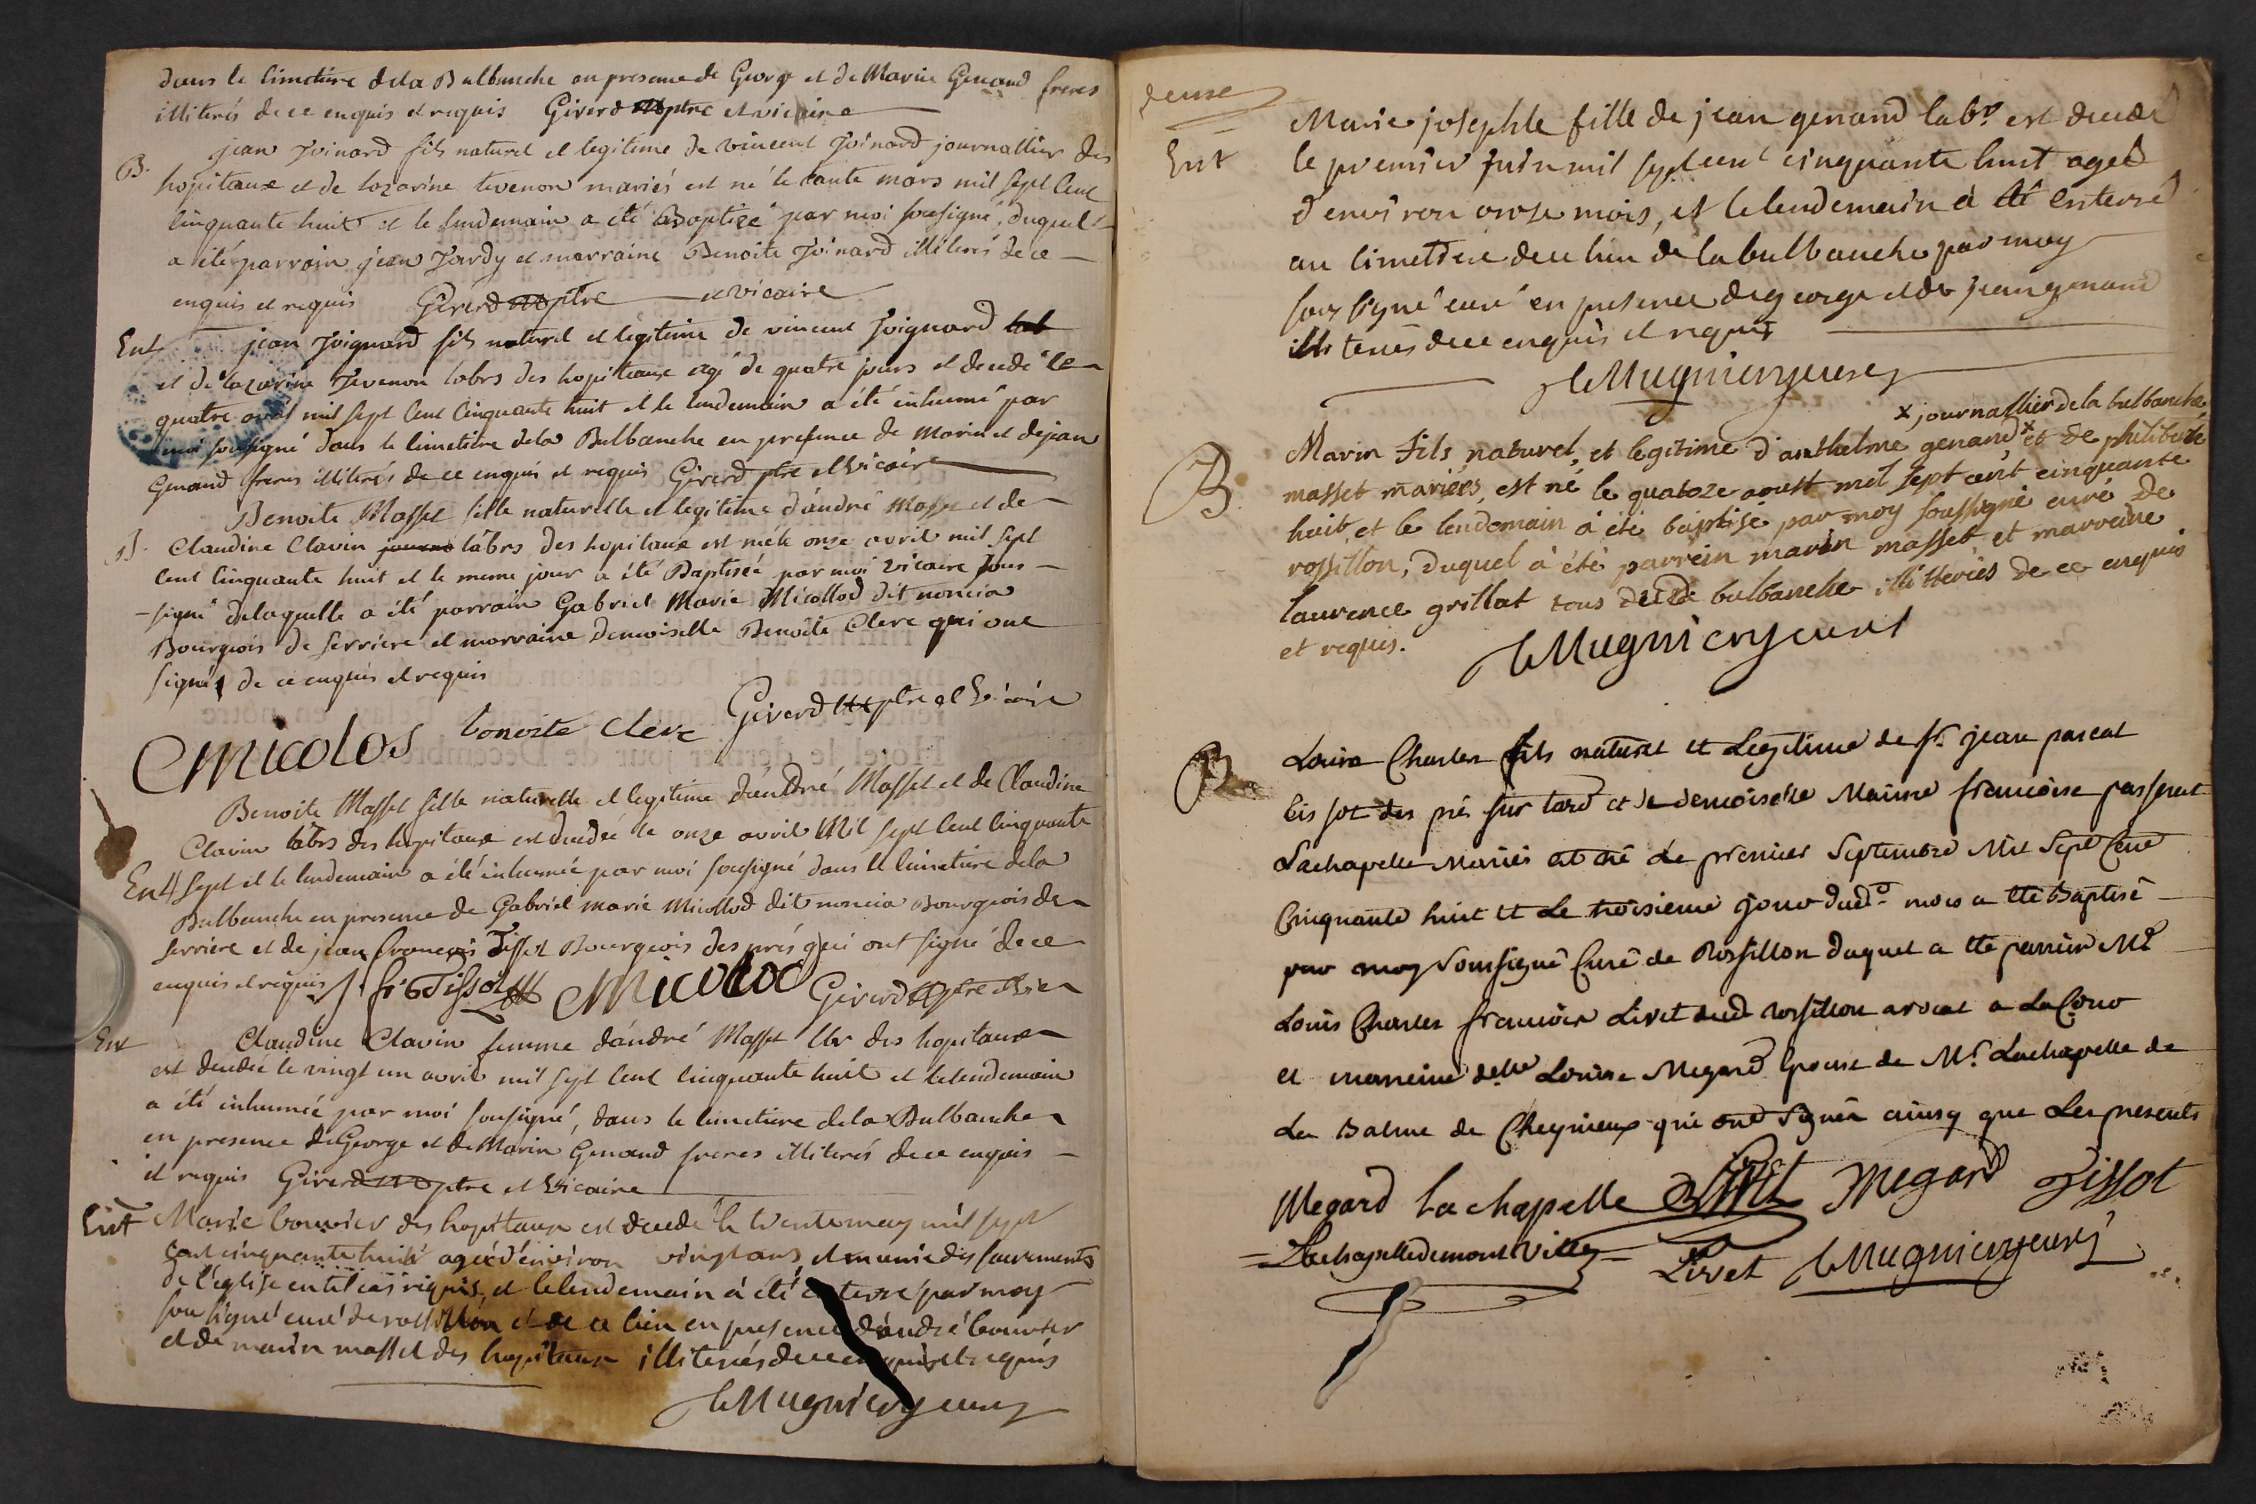 dans le Cimetière dela Balbanche en presence de George et de Marin Genand freres
illiterés de ce enquis et requis Girerd ptre et vicaire
B.
jean Joinard fils naturel et legitime de vincent Joinard journallier des
hopitaux et de lazarine tevenon mariés est né le trante mars mil sept Cent
Cinquante huit et le lendemain a été Baptizé par moi sousigné, duquel
a été parrain jean Jardy et marraine Benoite Joinard illiterés de ce
enquis et requis Girerd ptre et vicaire
Ent
jean Joignard fils naturel et légitime de vincent Joignard
et de lazarine Tevenon labrs des hopitaux agé de quatre jours et decedé le
quatre avril mil sept Cent Cinquante huit et le lendemain a été inhumé par
moi sousigné dans le Cimetière dela Balbanche en presence de Marin et de jean
Genand freres illiterés de ce enquis et requis Girerd ptre et vicaire
B.
Benoite Masset fille naturelle et legitime d'andré Masset et de
Claudine Clavin labrs des hopitaux est née le onze avril mil sept
Cent Cinquante huit et le meme jour a été Baptisée par moi vicaire sous
-signé delaquelle a été parrain Gabriel Marie Micollod dit noncia
Bourgeois de Serriere et marraine demoiselle Benoite Clerc qui ont
signés de ce enquis et requis
Micolos benoite Clerc Girerd ptre et Vicaire
Benoite Masset fille naturelle et legitime d'andré Masset et de Claudine
Clavin labrs des hopitaux est decedée le onze avril Mil sept Cent Cinquante
Ent
sept et le lendemain a été inhumée par moi sousigné dans le Cimetière dela
Balbanche en presence de Gabriel marie Micollod dit noncia Bourgeois de
Serriere et de jean François Tissot Bourgeois des prés qui ont signé de ce
enquis et requis J. frs Tissot Micolod Girerd ptre et Vic
Ent
Claudine Clavin femme d'andré Masset lbr des hopitaux
est decedée le vingt un avril mil sept Cent Cinquante huit et le lendemain
a été inhumée par moi sousigné, dans le Cimetiere dela Balbanche
en presence de George et de Marin Genand freres illiterés de ce enquis
et requis Girerd ptre et Vicaire
Ent
Marie bouvier des hopitaux est decedé le trente may mil sept
cent cinquante huit agée d'environ vingt ans, et munie des sacrements
de l'église en tel cas requis, et le lendemain à été enterré par moy
sousigné curé de rossillon et de ce lieu en presence d'andré bouvier
et de marin masset des hopitaux illiterés de ce enquis et requis
leMugnier curé
deuse
Ent
Marie josephte fille de jean genand labr est decedé
le premier juin mil sept cent cinquante huit agée
d'environ onze mois, et le lendemain à été enterré
au cimettiere de ce lieu de la balbanche par moy
sousigné curé en presence de george et de jean genand
illiterés de ce enquis et requis
leMugnier curé
B
x journallier de la balbanche
Marin fils naturel et legitime d'anthelme genand x et de philiberte
masset mariérs, est né le quatoze aoust mil sept cent cinquante
huit et le lendemain à été baptisé par moy soussigné curé de
rossillon, duquel à été parrein marin masset et marreine
laurence grillat tous de la balbanche illitterés de ce enquis
et requis.
leMugnier curé
B
Louis Charles fils naturel et Legitime de sr. jean pascal
tissot des prés sur tard et de demoiselle Marine françoise passerat
Lachapelle Mariés est né le premier Septembre Mil Sept Cent
Cinquante huit et Le troisieme jour dud. mois a été Baptisé
par moy Soussigné Curé de Rossillon duquel a été parrin Mr
Louis Charles françois Livet dud Rossillon avocat a La Cour
et marreine delle Louise Megard Epouse de Mr. Lachapelle de
La Balme de Cheynieux qui ont Signés ainsy que Les presents
Megard la chapelle Livet Megard Tissot
= Lachapelle de mont Villey = Livet leMugnier curé